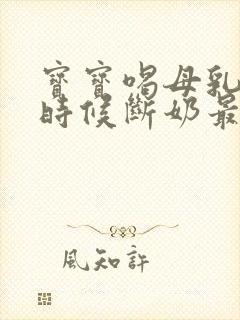 寶寶喝母乳
時候斷奶最
風知許